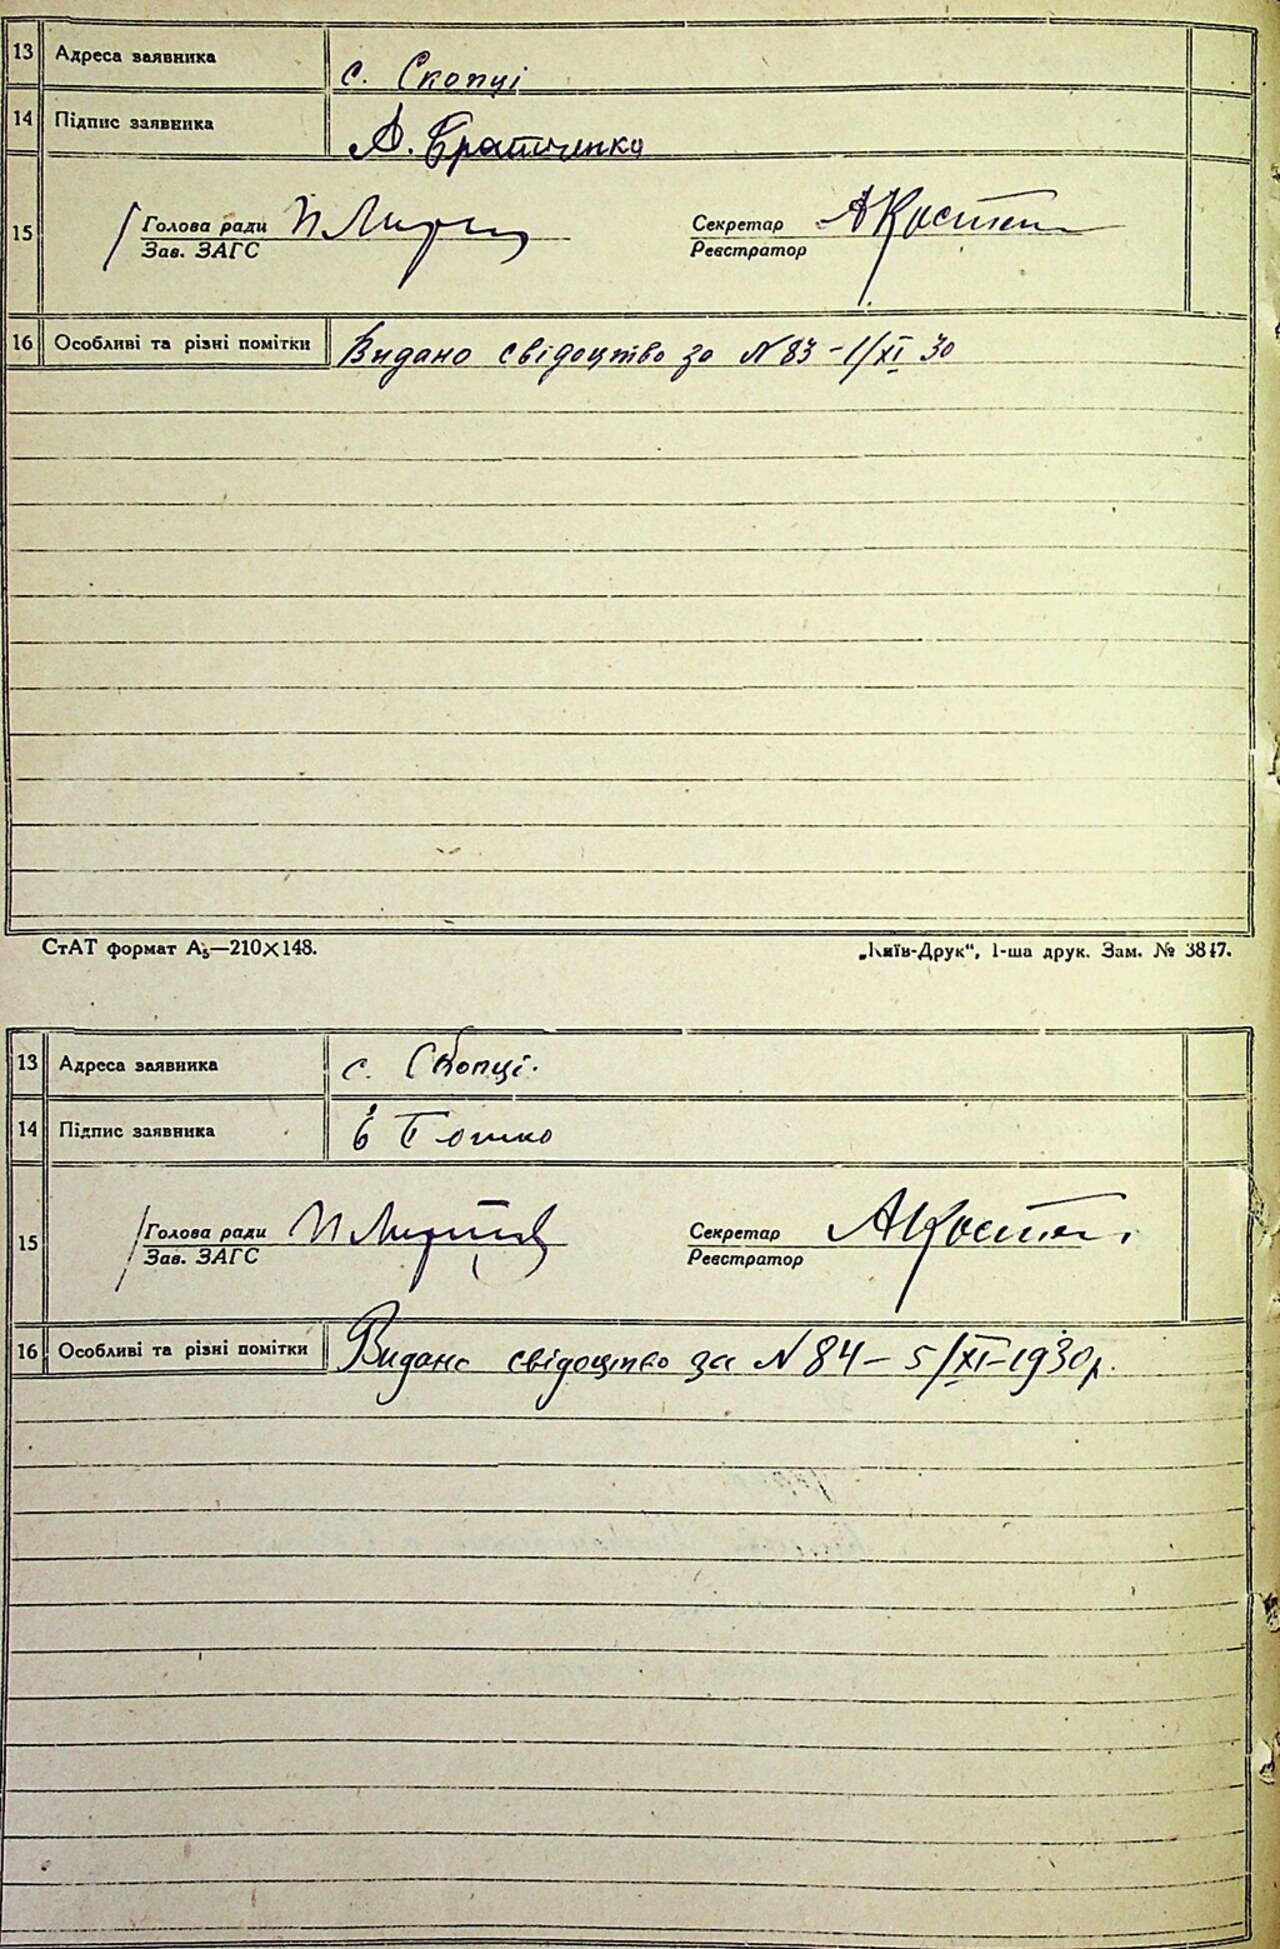 13 Адреса заявника с. Скопці
14 Підпис заявника А. Братченко
15 Голова ради Секретар
Зав. ЗАГС Реєстратор
16 Особливі та різні помітки Видано свідоцтво за N 83 - 1/XI 30
СтАТ формат А5—210×148. „Київ-Друк“, 1-ша друк. Зам. № 3847.
13 Адреса заявника с. Скопці.
14 Підпис заявника
15 Голова ради Секретар
Зав. ЗАГС Реєстратор
16 Особливі та різні помітки Видано свідоцтво за N 84 - 5/XI-1930 р.